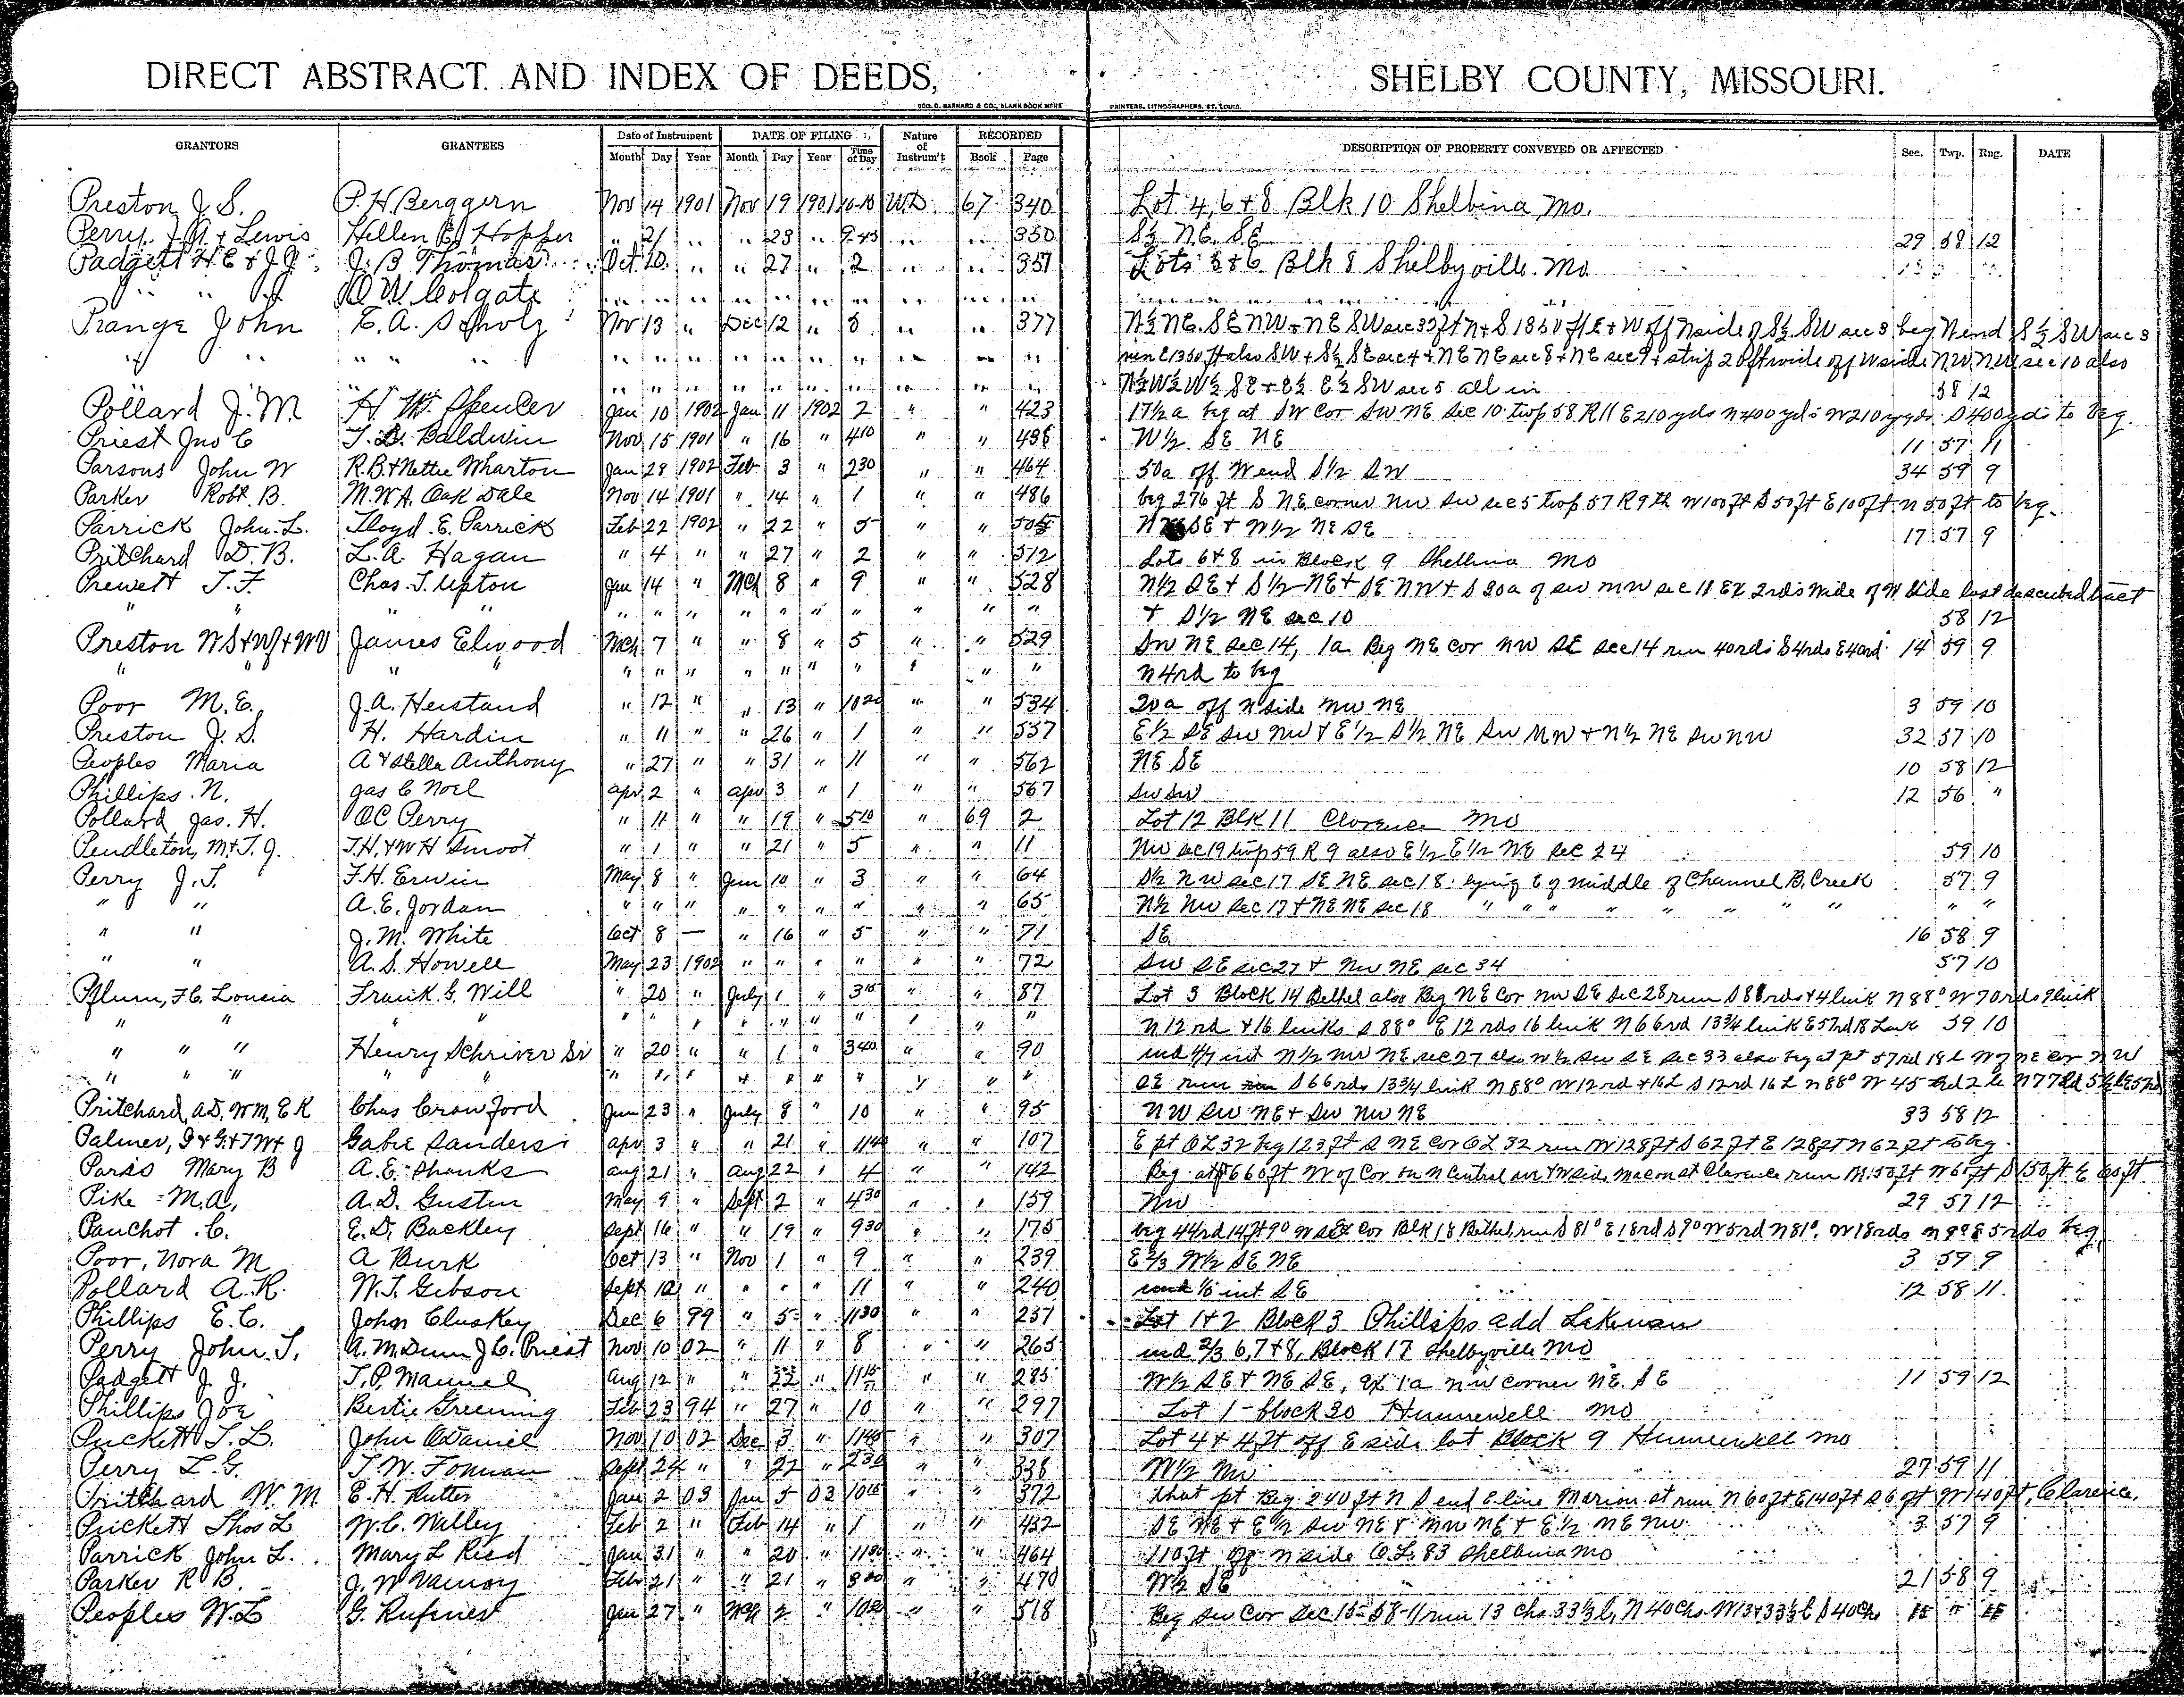 DIRECT ABSTRACT AND INDEX OF DEEDS, SHELBY COUNTY, MISSOURI.
GEO. D. BARNARD & CO., BLANK BOOK MFRS PRINTERS, LITHOGRAPHERS, ST. LOUIS.
GRANTORS GRANTEES Date of Instrument DATE OF FILING Nature of Instrum't RECORDED DESCRIPTION OF PROPERTY CONVEYED OR AFFECTED Sec. Twp. Rng. DATE
Month Day Year Month Day Year Time of Day Book Page
Preston J. S. P. H. Berggern Nov 14 1901 Nov 19 1901 W.D. 67 340 Lot 4, 6 + 8 Blk 10 Shelbina Mo.
Perry J. A. + Lewis Hellen E. Hopper " 21 " " 23 " 9-45 " " 350 S½ N.E. S.E 29 58 12
Padgett H. E + J. J. J. B Thomas Oct 10 " " 27 " 2 " " 351 Lots 5 + 6 Blk 8 Shelbyville Mo
" " " O. W. Colgate " " " " " " " " " "
Prange John E. A. Scholz Nov 13 " Dec 12 " 5 " " 377 N½ NE. SE NW + NE SW sec 3 beg N end S½ SW sec 3
" " " " " " " " " " " " " " also SW + S½ SE sec 4 + NE NE sec 8 + NE sec 9 + strip 20ft wide off W side NW NW sec 10 also
" " " " " " " " " N½ W½ W½ SE + E½ E½ SW sec 5 all in 58 12
Pollard J. M. H. W. Spencer Jan 10 1902 Jan 11 1902 2 " " 423 17½ a beg at SW Cor SW NE Sec 10 twp 58 R 11 E 210 yds N 400 yds W 210 yds S 400 yds to beg.
Priest Jno C T. B. Baldwin Nov 15 1901 " 16 " 4 10 " " 435 W½ SE NE 11 57 11
Parsons John W R. B + Nettie Wharton Jan 28 1902 Feb 3 " 2 30 " " 464 50a off W end S½ SW 34 59 9
Parker Robt. B. M. W. A. Oak Dale Nov 14 1901 " 14 " 1 " " 486 beg 276 ft S NE corner NW SW sec 5 twp 57 R 9 th W 100 ft S 50 ft E 100 ft N 50 ft to beg.
Parrick John L. Lloyd E. Parrick Feb 22 1902 " 22 " 5 " " SE + W½ NE SE 17 57 9
Pritchard D. B. L. A. Hagan " 4 " " 27 " 2 " " 512 Lots 6 + 8 in Block 9 Shelbina Mo
Prewett T. F. Chas. T. Upton Jan 14 " Mch 8 " 9 " " 528 N½ SE + S½ NE + SE NW + S 30a of SW NW sec 11 Ex 2 rds wide of N Side last described tract
" " " " " " " " " " " " " " + S½ NE sec 10 58 12
Preston W S + + W W James Elwood Mch 7 " " 8 " 5 " " 529 SW NE sec 14, 1a Beg NE cor NW SE sec 14 run 40 rds S 4 rds E 40 rd 14 59 9
" " " " " " " " " " " " " " N 4 rd to beg
Poor M. E. J. A. Heistand " 12 " " 13 " 10 20 " " 534 20a off N side NW NE 3 59 10
Preston J. S. H. Hardin " 11 " " 26 " 1 " " 557 E½ SE SW NW + E½ S½ NE SW NW + N½ NE SW NW 32 57 10
Peoples Maria A + Stella Anthony " 27 " " 31 " 11 " " 562 NE SE 10 58 12
Phillips N. Gas C Noel Apr 2 " Apr 3 " 1 " " 567 SW SW 12 56 "
Pollard Jas. H. O C Perry " 11 " " 19 " 5 10 " 69 2 Lot 12 Blk 11 Clarence Mo
Pendleton, M + T. J. T. H. + W H Smoot " 1 " " 21 " 5 " " 11 NW sec 19 twp 59 R 9 also E½ E½ NE Sec 24 59 10
Perry J. T. F. H. Erwin May 8 " Jun 10 " 3 " " 64 S½ NW sec 17 SE NE sec 18 lying E of middle of Channel B. Creek 57 9
" " A. E. Jordan " " " " " " " " " 65 N½ NW Sec 17 + NE NE Sec 18 " " " " " " " " " "
" " J. M. White Oct 8 — " 16 " 5 " " 71 SE 16 58 9
" " A. S. Howell May 23 1902 " " " " " " 72 SW SE sec 27 + NW NE sec 34 57 10
Pflum, F. C. Lousia Frank G. Will " 20 " July 1 " 3 15 " " 87 Lot 3 Block 14 Bethel also Beg NE Cor NW SE Sec 28 run S 88 rds + 4 link N 88° W 70 rds 9 link
" " " " " " " " " " " " " " N 12 rd + 16 links S 88° E 12 rds 16 link N 66 rd 13¾ link E 57 rd 18 Link 59 10
" " " Henry Schriver Sr " 20 " " 1 " 3 40 " " 90 und int N½ NW NE sec 27 also W½ SW SE Sec 33 also beg at pt 57 rd 18 L W of NE Cor NW
" " " " " " " " " " " " " " " SE run S 66 rds 13¾ link N 88° W 12 rd + 16 L S 12 rd 16 L N 88° W 45
Pritchard, A D, W M, E K Chas Crawford Jun 23 " July 8 " 10 " " 95 NW SW NE + SW NW NE 33 58 12
Palmer, Gabe Sanders Apr 3 " " 21 " 11 40 " " 107 E pt O L 32 beg 123 ft S NE Cor O L 32 run W 128 ft S 62 ft E 128 ft N 62 ft to beg.
Paris Mary B A. E. Shanks Aug 21 " Aug 22 " 4 " " 142 Beg at 660 ft W of Cor on N Central ave + W side Macon st Clarence run
Pike M. A. A. D. Gusten May 9 " Sept 2 " 4 30 " " 159 NW 29 57 12
Panchot C. E. D. Buckley Sept 16 " " 19 " 9 30 " " 175 beg 44 rd 14 ft 9° W Cor Blk 18 Bethel run S 81° E 18 rd S 9° W 5 rd N 81° W 18 rds beg
Poor, Nora M A Burk Oct 13 " Nov 1 " 9 " " 239 E ⅔ W½ SE NE 3 59 9
Pollard A. R. W. T. Gibson Sept 12 " " " " 11 " " 240 int SE 12 58 11
Phillips E. C. John Cluskey Dec 6 99 " 5 " 11 30 " " 257 Lot 1 + 2 Block 3 Phillips add Lakenan
Perry John T. A. M. Dunn J. C. Priest Nov 10 02 " 11 " 8 " " 265 und ⅔ 6, 7 + 8, Block 17 Shelbyville Mo
Padgett J. J. T. P. Manuel Aug 12 " " 22 " 11 15 " " 285 W½ SE + NE SE, ex 1a NW corner NE SE 11 59 12
Phillips Joe Bertie Greening Feb 23 94 " 27 " 10 " " 297 Lot 1 - block 30 Hunnewell Mo
Puckett T. L. John O Daniel Nov 10 02 Dec 3 " 11 40 " " 307 Lot 4 + 4 ft off E side lot Block 9 Hunnewell Mo
Perry L. G. T. W. Forman Sept 24 " " 22 " 2 30 " " 338 W½ NW 27 59 11
Pritchard W. M. E. H. Rutter Jan 2 03 Jan 5 03 10 15 " " 372 that pt Beg 240 ft N S end E line Marion st run N 60 ft E 140 ft S 6 ft W 140 ft, Clarence.
Prickett Thos L W. C. Walley Feb 2 " Feb 14 " 1 " " 432 SE NE + E½ SW NE + NW NE + E½ NE NW 3 57 9
Parrick John L. Mary L Reed Jan 31 " " 20 " 11 30 " " 464 110 ft off N side O. L. 83 Shelbina Mo
Parker R B. J. W Vanroy Feb 21 " " 21 " 3 00 " " 470 W½ SE 21 58 9
Peoples W. L G. Rufener Jan 27 " Mch 2 " 10 30 " " 518 Beg SW Cor Sec 15-58-11 run 13 chs 33⅓ l, N 40 chs W 13 + 33⅓ l S 40 chs